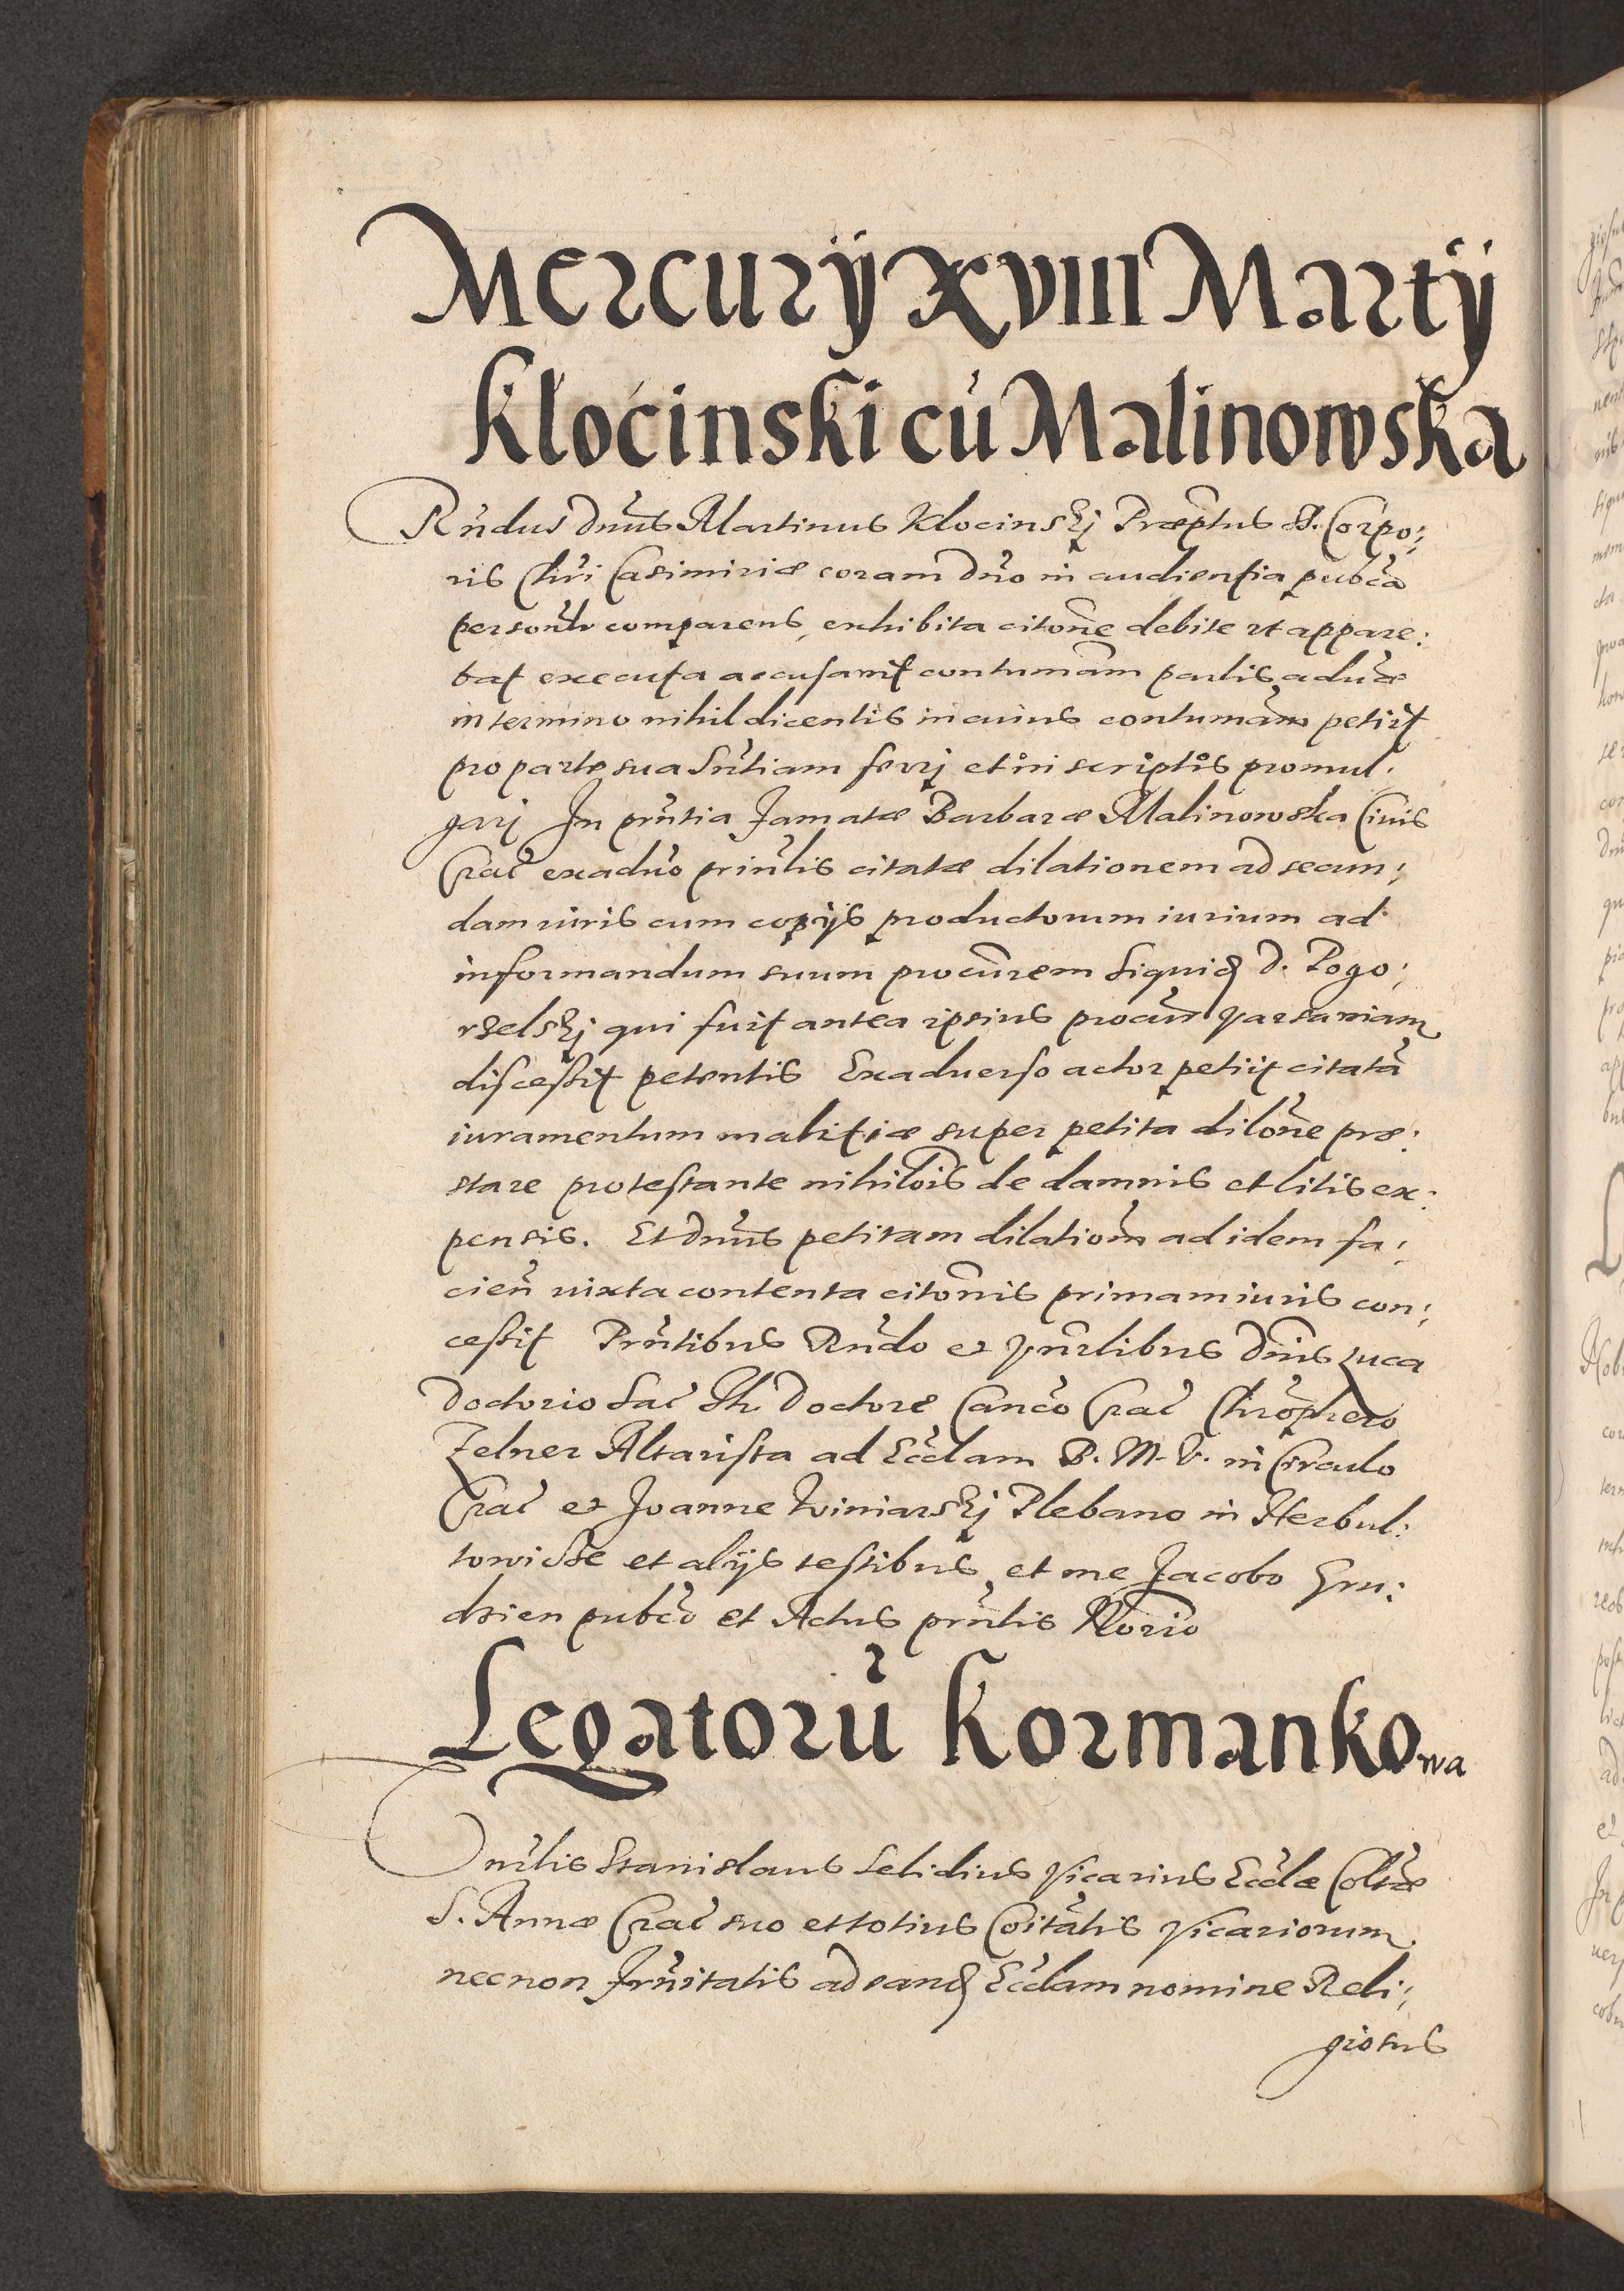 Mercurÿ XVIII Martÿ
Kłocinski cũ Malinowska
Rñdus Dnũs Martinus Klocinskj Præptus S. Corpo:
ris Chrĩ Casimiriæ coram Dño in audientia pubcã
personlr̃ comparens, exhibita citone͂ debite vt appare:
bat executa accusavit contumam͂ partis aduæ͂
in termino nihil dicentis in cuius contumam͂ petiit
pro parte sua Sñtiam ferrj et in scriptis promul:
garj In pñtia famatæ Barbaræ Malinowska Civis
Crac̃ ex aduõ prinl̃is citatæ dilationem ad secun:
dam iuris cum copijs productorum iurium ad
informandum suum procũrem siquid D. Pogo:
rzelskj qui fuit antea ipsius procũr Varsauiam
discessit petentis Exaduerso actor petiit citatã
iuramentum malitiæ super petita dilõne præ:
stare protestante nihilõis de damnis et litis ex:
pensis. Et Dnũs petitam dilationẽ ad idem fa:
cieñ iuxta contenta citonĩs primam iuris con:
cessit Pñtibus Rñdo et Vñrlibus Dnĩs Luca
Doctorio Sac̃ Th. Doctore Canc̃o Crac̃ Chrõphero
Zelner Altarista ad Eccl̃am B. M. V. in Circulo
Crac̃ et Joanne Winiarskj Plebano in Herbul:
towice et alijs testibus, et me Jacobo Gru:
dzien pubcõ et Actus pñtis Norĩo
Legatorũ Kormankowa
Vñrlis Stanislaus Selidius Vicarius Eccl̃æ Coltæ͂
S. Annæ Crac̃ suo et totius Coĩtatis Vicariorum
necnon frñitatis ad eand Eccl̃am nomine Reli:
giosus